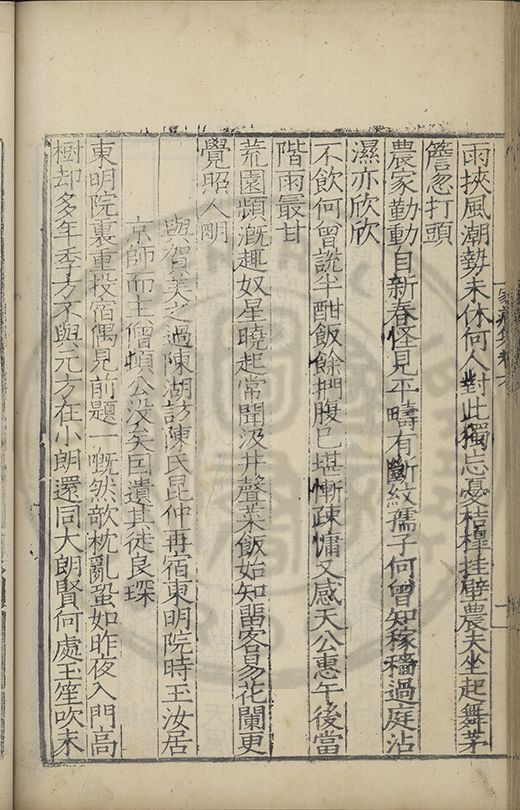 雨挾風潮勢未休何人對此獨忘憂桔橰挂壁農夫坐起舞茅
簷忽打頭
農家勤動自新春怪見平疇有斷紋孺子何曾知稼穡過庭沾
濕亦欣欣
不飲何曾説半酣飯餘捫腹已堪慚疎慵又感天公惠午後當
階雨最甘
荒園頻漑趣奴星曉起常聞汲井聲菜飯始知畱客易花闌更
覺昭人明
與智美之過陳湖訪陳氏昆仲再宿東明院時玉汝居
京師而主僧頓公没矣因遺其徒良琛
東明院裏重投宿偶見前題一嘅然欹枕亂蛩如昨夜入門高
樹却多年季方不與元方在小朗還同大朗賢何處玉笙吹未